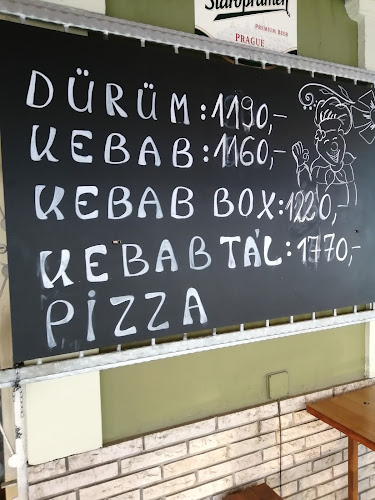 Staropramen
PREMIUM BEER
PRAGUE
DÜRÜM:1190,-
KEBAB:1160,-
KEBAB BOX:1220,-
KEBABTÁL:1770,-
PIZZA